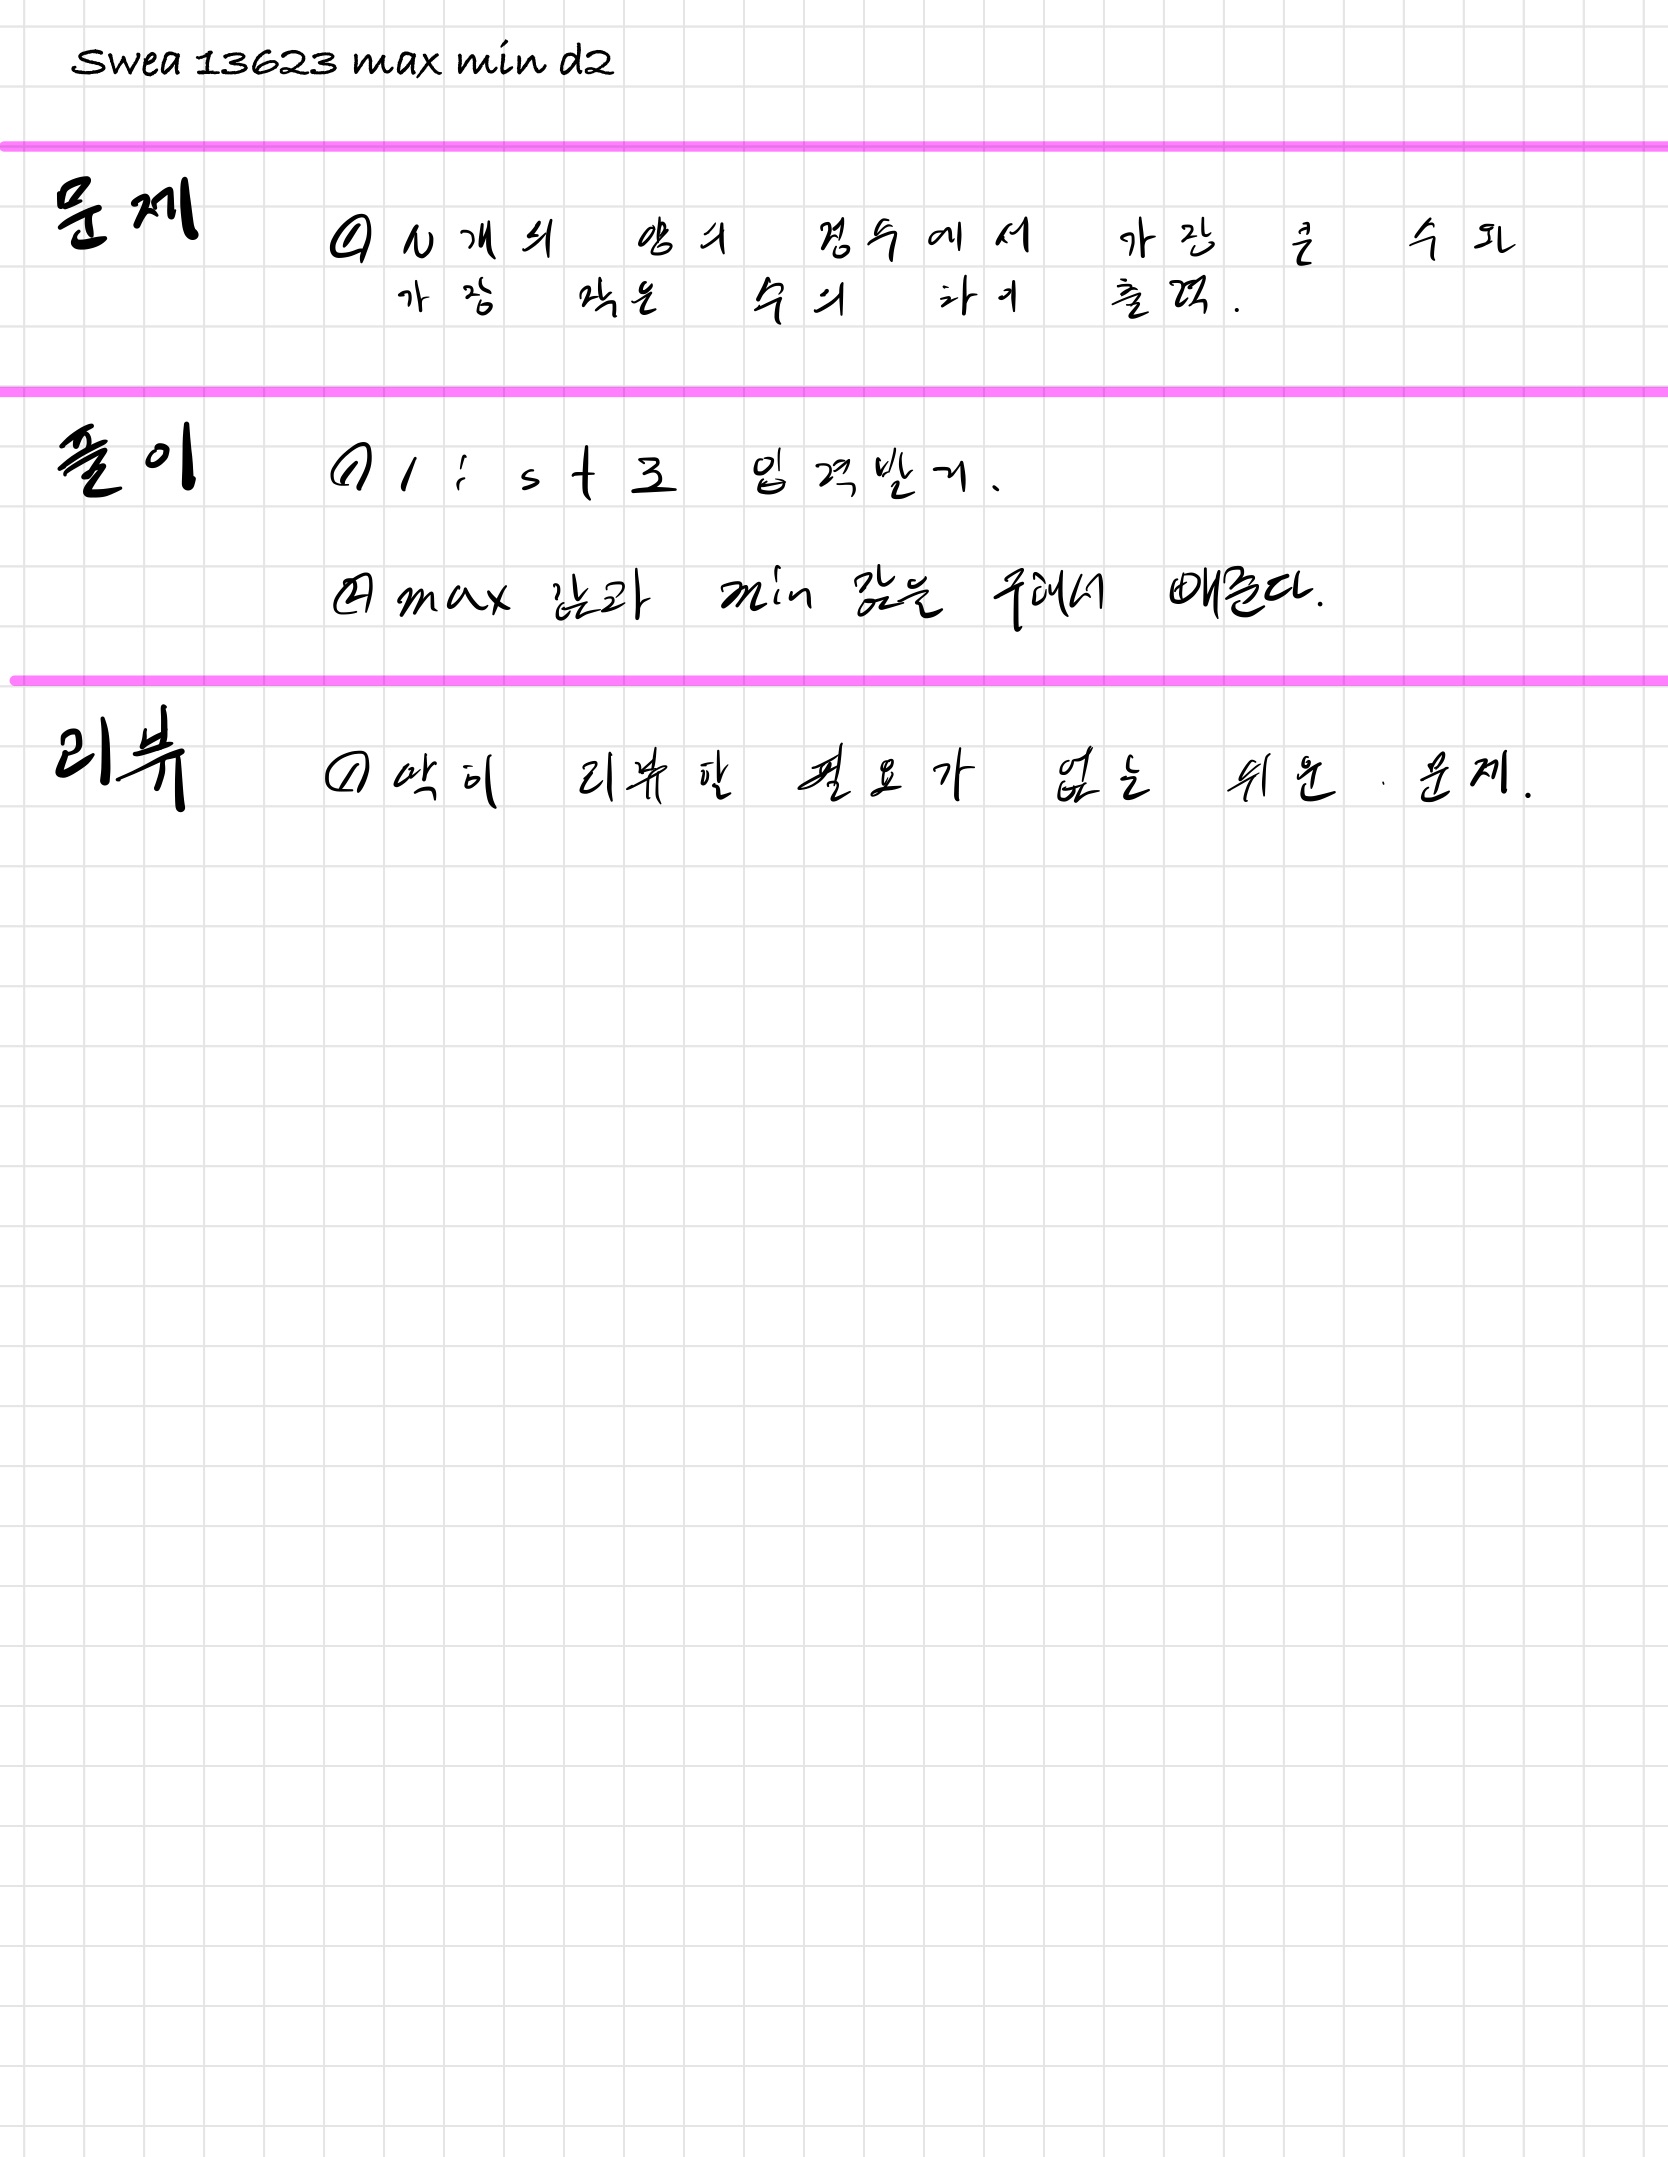 Swea 13623 max min d2
문제
① N개의 양의 정수에서 가장 큰 수와
가장 작은 수의 차이 출력.
풀이
① list로 입력받기.
② max 값과 min 값을 구해서 빼준다.
리뷰
① 딱히 리뷰할 필요가 없는 쉬운 문제.